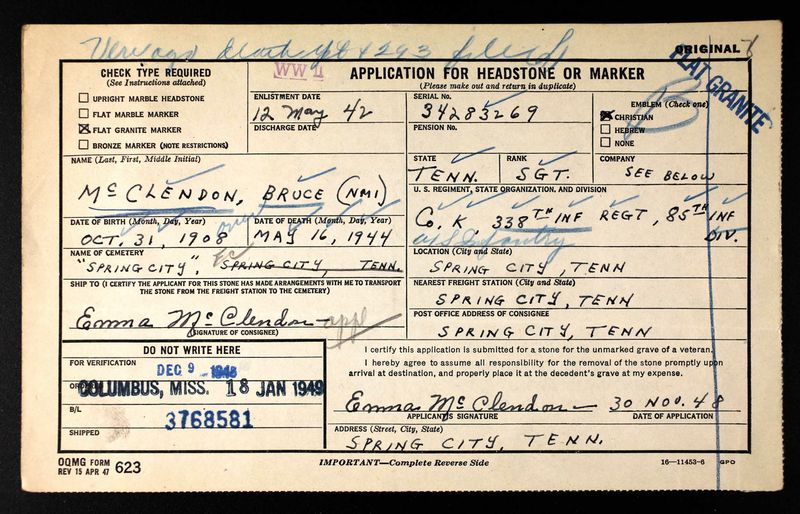 death filed
ORIGINAL
WW II
FLAT GRANITE
CHECK TYPE REQUIRED
(See Instructions attached)
UPRIGHT MARBLE HEADSTONE
FLAT MARBLE MARKER
FLAT GRANITE MARKER
BRONZE MARKER (NOTE RESTRICTIONS)
APPLICATION FOR HEADSTONE OR MARKER
(Please make out and return in duplicate)
ENLISTMENT DATE
12 May 42
DISCHARGE DATE
SERIAL No.
34283269
PENSION No.
EMBLEM (Check one)
CHRISTIAN
HEBREW
NONE
STATE
TENN.
RANK
SGT.
COMPANY
SEE BELOW
NAME (Last, First, Middle Initial)
McCLENDON, BRUCE (NMI)
U. S. REGIMENT, STATE ORGANIZATION, AND DIVISION
Co. K, 338TH INF REGT, 85TH INF
DIV.
US Infantry
DATE OF BIRTH (Month, Day, Year)
OCT. 31, 1908
DATE OF DEATH (Month, Day, Year)
MAY 16, 1944
NAME OF CEMETERY
"SPRING CITY", SPRING CITY, TENN.
LOCATION (City and State)
SPRING CITY, TENN
SHIP TO (I CERTIFY THE APPLICANT FOR THIS STONE HAS MADE ARRANGEMENTS WITH ME TO TRANSPORT
THE STONE FROM THE FREIGHT STATION TO THE CEMETERY)
Emma McClendon appl
(SIGNATURE OF CONSIGNEE)
NEAREST FREIGHT STATION (City and State)
SPRING CITY, TENN
POST OFFICE ADDRESS OF CONSIGNEE
SPRING CITY, TENN
DO NOT WRITE HERE
FOR VERIFICATION
DEC 9 1948
ORDERED
COLUMBUS, MISS. 18 JAN 1949
B/L
3768581
SHIPPED
I certify this application is submitted for a stone for the unmarked grave of a veteran.
I hereby agree to assume all responsibility for the removal of the stone promptly upon
arrival at destination, and properly place it at the decedent's grave at my expense.
Emma McClendon 30 NOV. 48
APPLICANT'S SIGNATURE DATE OF APPLICATION
ADDRESS (Street, City, State)
SPRING CITY, TENN.
OQMG FORM
REV 15 APR 47 623
IMPORTANT—Complete Reverse Side
16—11453-6 GPO